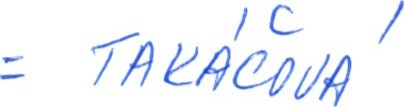 = TAKÁČOVÁ